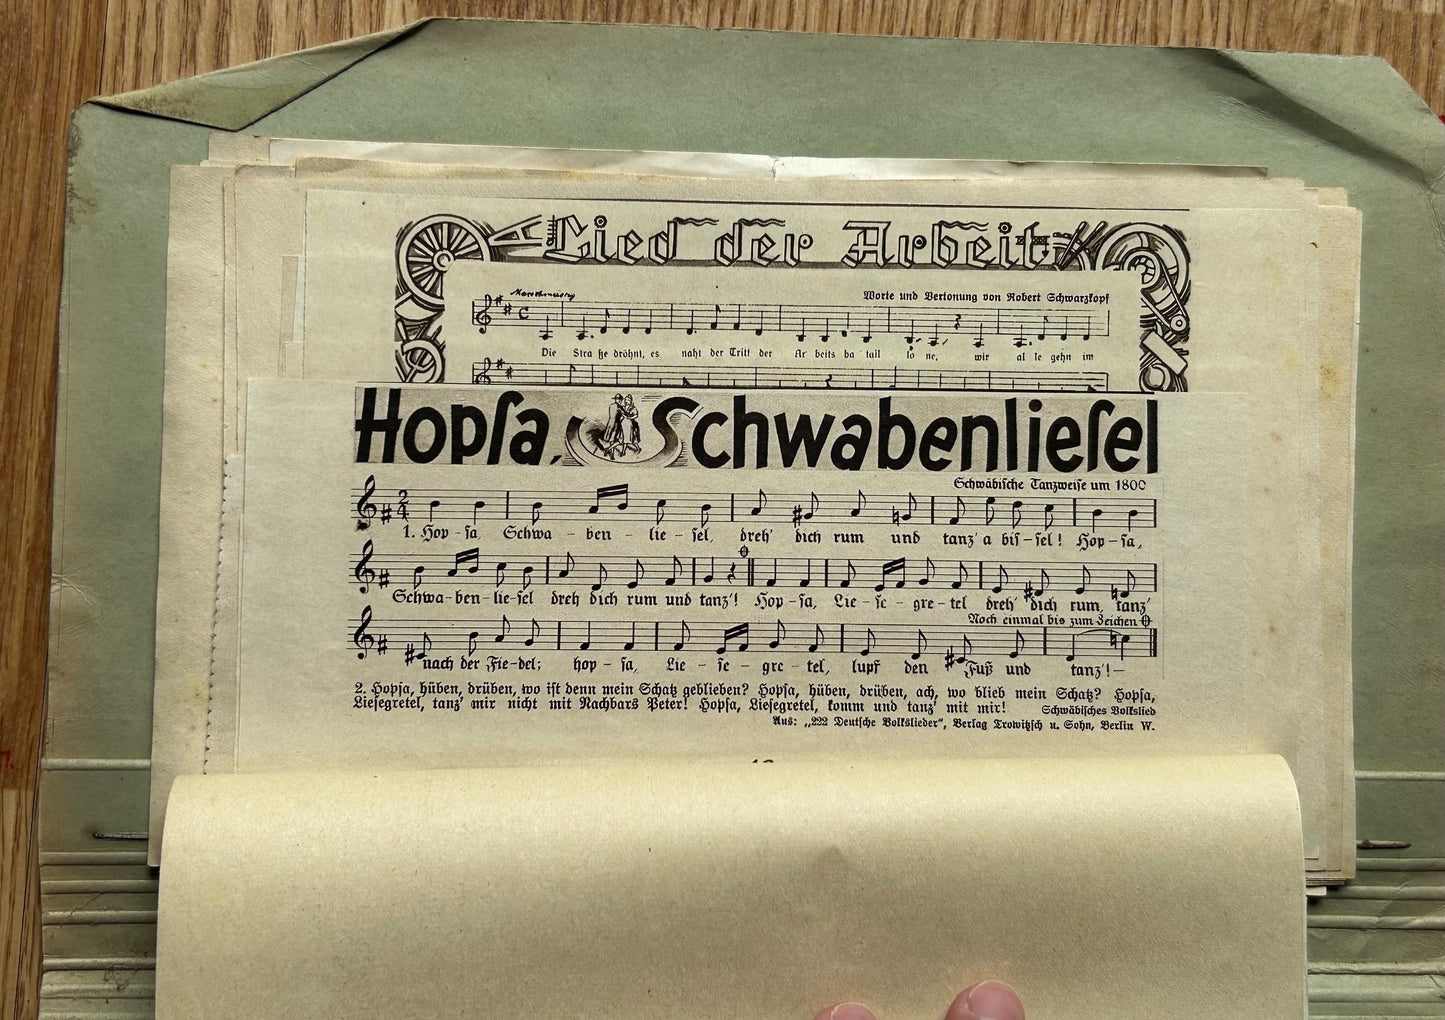 Lied der Arbeit
Worte und Vertonung von Robert Schwarzkopf
Die Stra ße dröhnt, es naht der Tritt der Ar beits ba tail lo ne, wir al le gehn im
Hopſa, Schwabenlieſel
Schwäbiſche Tanzweiſe um 1800
1. Hop – ſa, Schwa – ben – lie – ſel, dreh' dich rum und tanz' a biſ–ſel! Hop–ſa,
Schwa–ben–lie–ſel dreh dich rum und tanz'! Hop–ſa, Lie–ſe–gre–tel dreh' dich rum, tanz'
Noch einmal bis zum Zeichen
nach der Fie–del; hop – ſa, Lie – ſe – gre – tel, lupf den Fuß und tanz'!—
2. Hopſa, hüben, drüben, wo iſt denn mein Schatz geblieben? Hopſa, hüben, drüben, ach, wo blieb mein Schatz? Hopſa,
Lieſegretel, tanz' mir nicht mit Nachbars Peter! Hopſa, Lieſegretel, komm und tanz' mit mir! Schwäbiſches Volkslied
Aus: „222 Deutſche Volkslieder“, Verlag Trowitzſch u. Sohn, Berlin W.